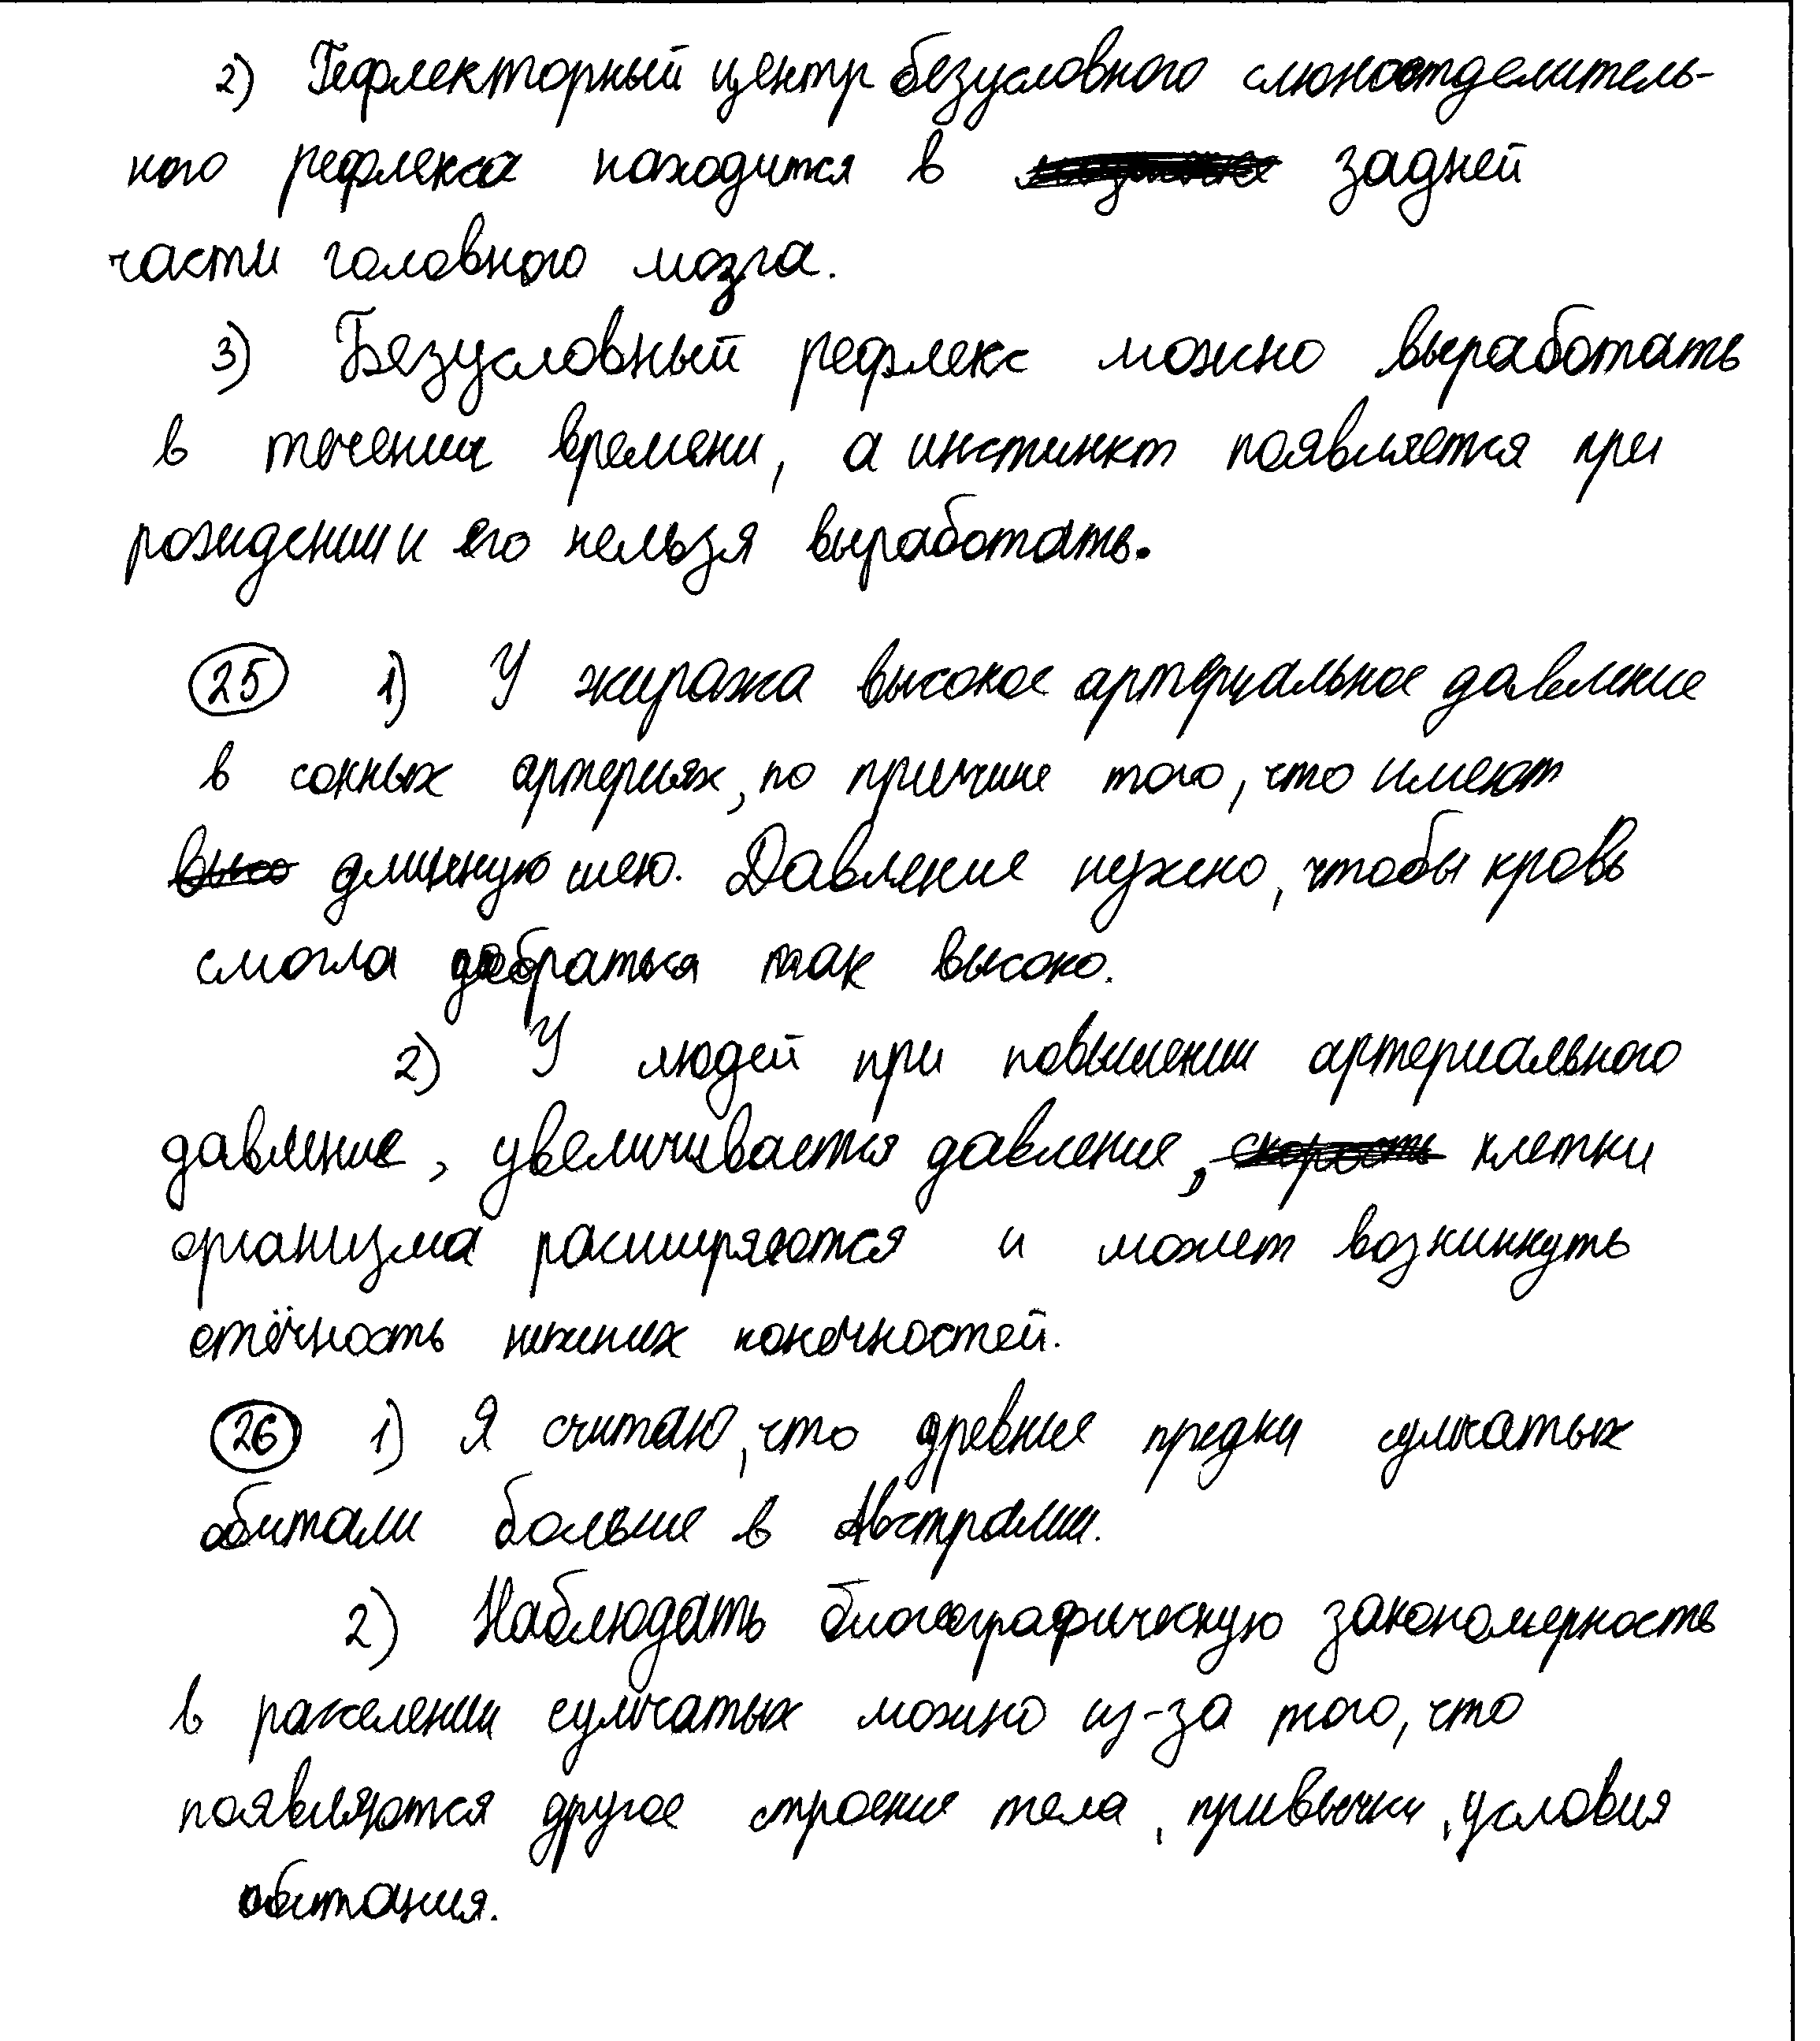 2) Рефлекторный центр безусловного слюноотделитель-
ного рефлекса находится в задней
части головного мозга.
3) Безусловный рефлекс можно выработать
в течении времени, а инстинкт появляется при
рождении и его нельзя выработать.
25 1) У жирафа высокое артериальное давление
в сонных артериях, по причине того, что имеют
длинную шею. Давление нужно, чтобы кровь
смогла добраться так высоко.
2) У людей при повышении артериального
давление, увеличивается давление, клетки
организма расширяются и может возникнуть
отёчность нижних конечностей.
26 1) Я считаю, что древние предки сумчатых
обитали больше в Австралии.
2) Наблюдать биогеографическую закономерность
в расселении сумчатых можно из-за того, что
появляются другое строение тела, привычки, условия
обитания.